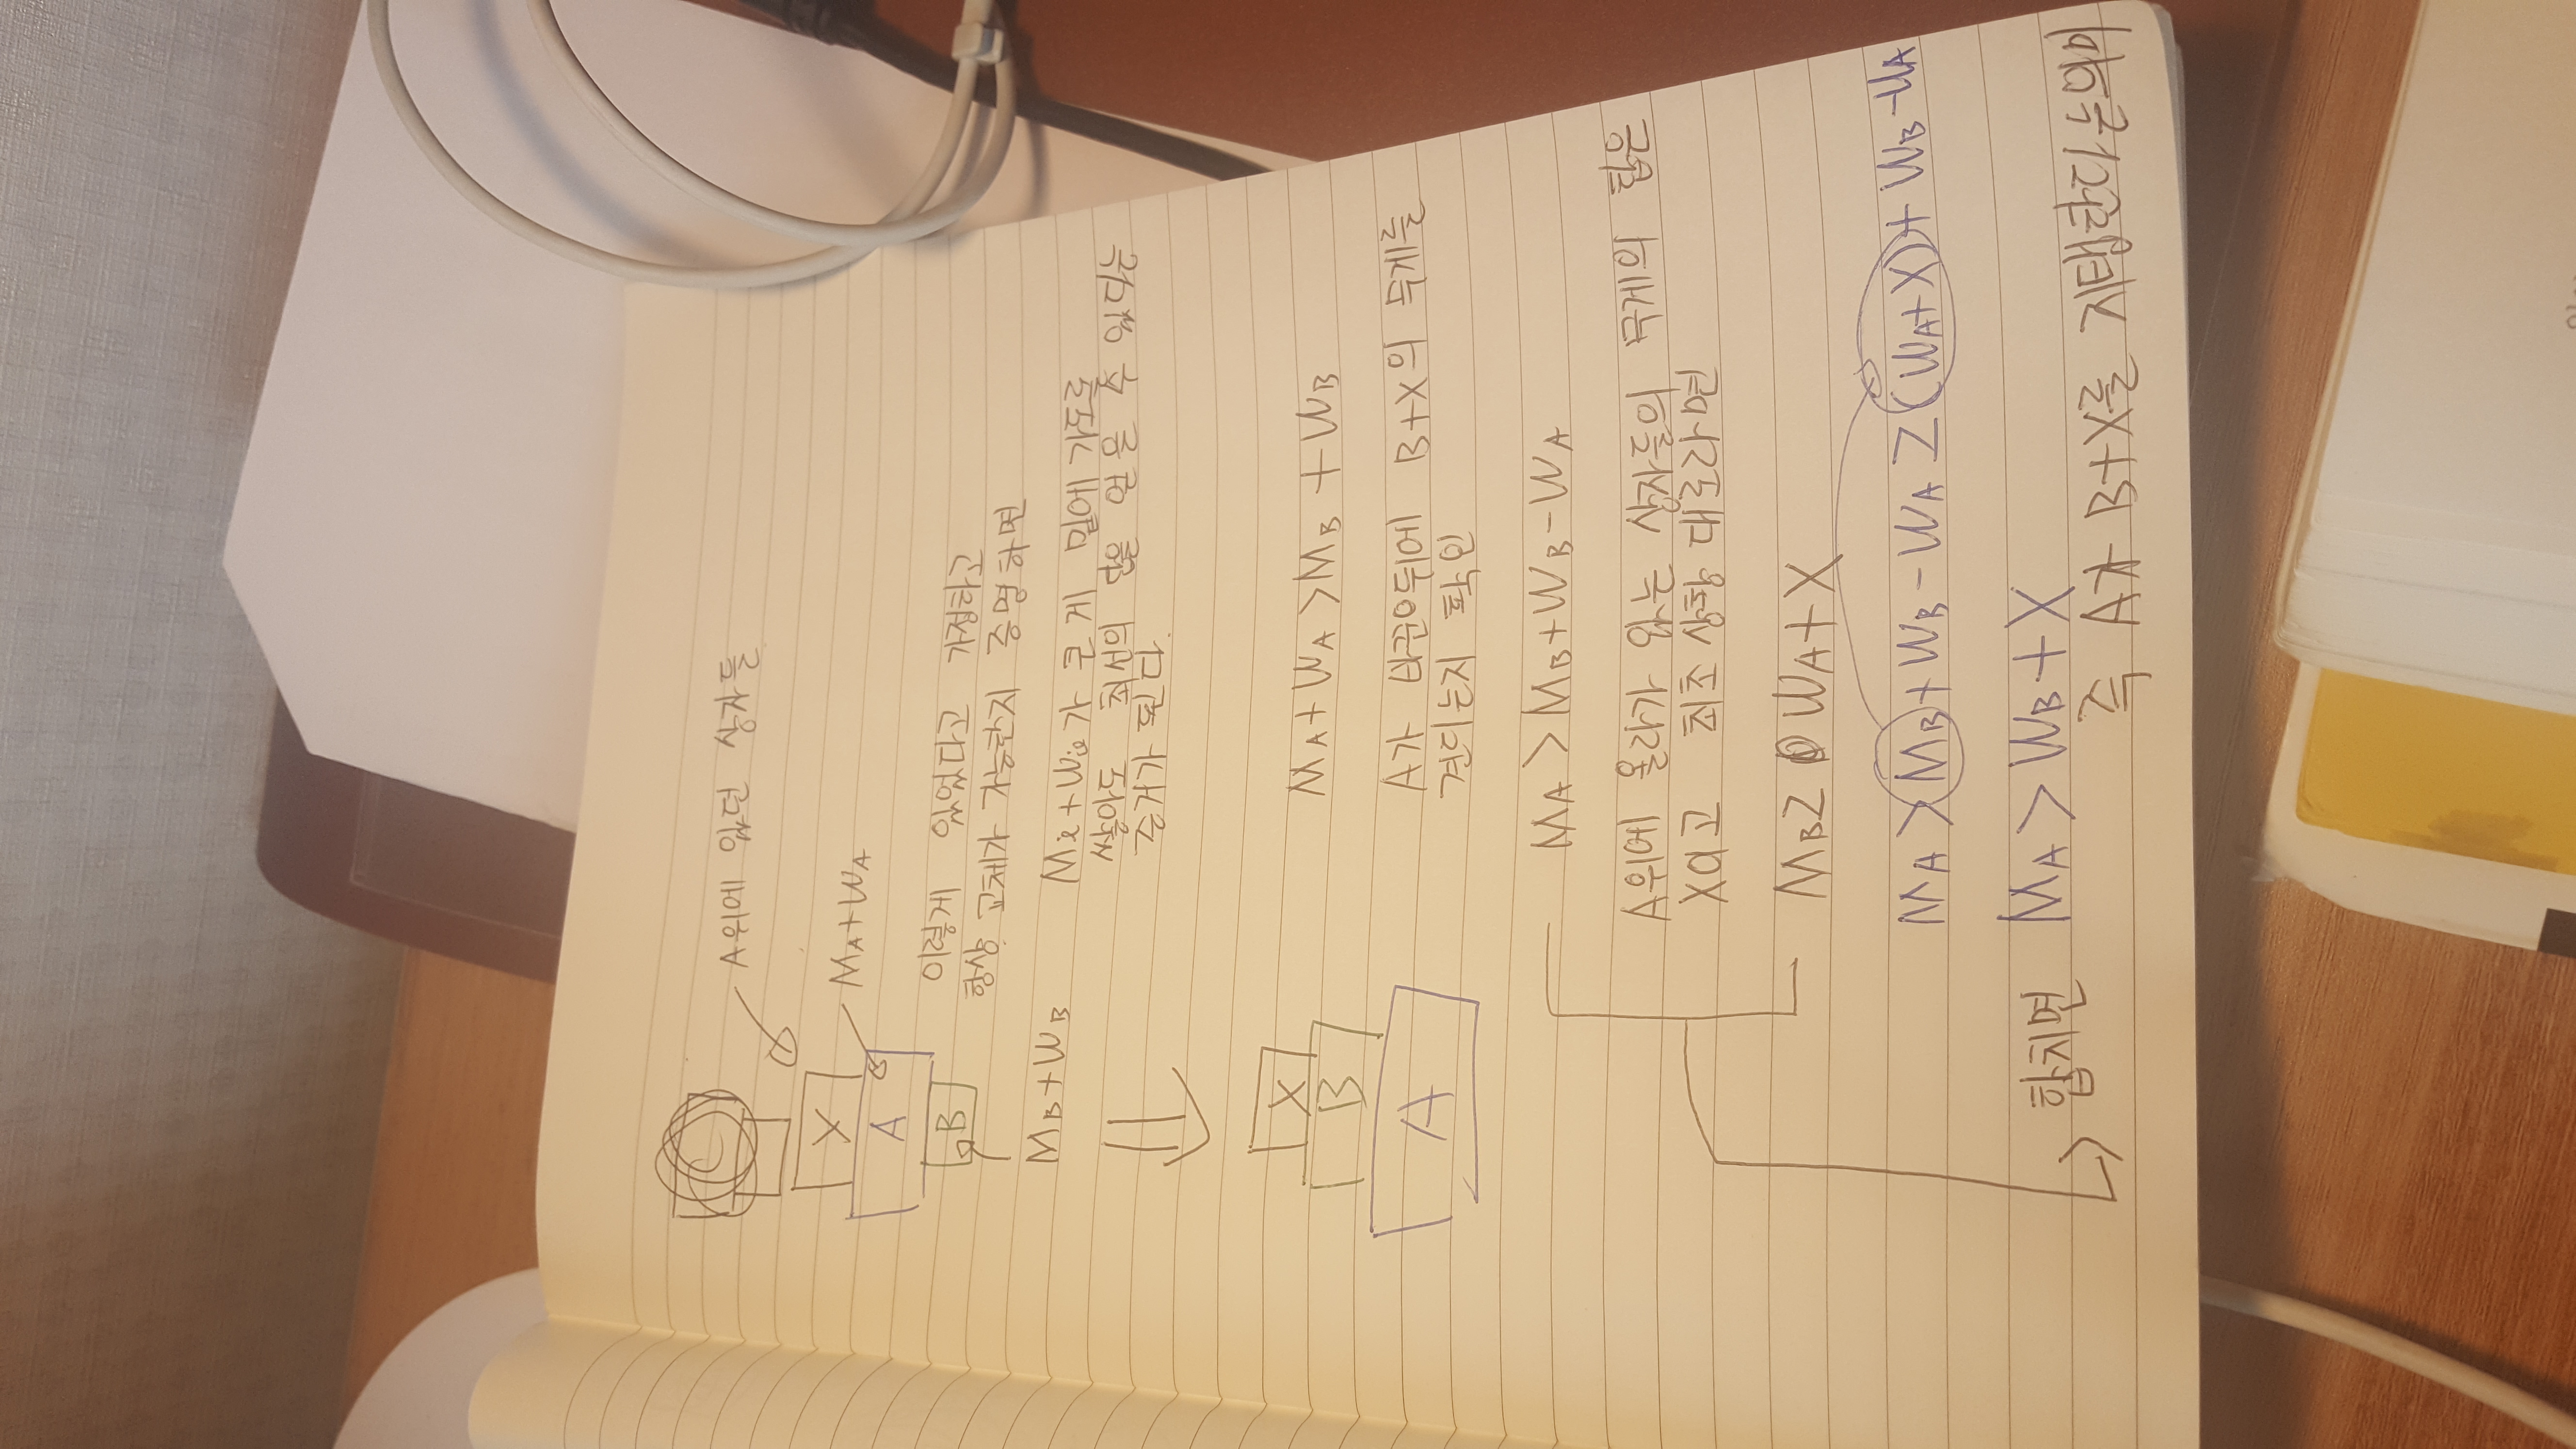 A위에 있던 상자들
X
MA+WA
A
B
이렇게 있었다고 가정하고
항상 교체가 가능한지 증명하면
MB+WB
Mi+Wi가 큰 게 밑에 가도록
쌓아도 최선의 답을 얻을 수 있다는
증거가 된다.
X
B
A
MA+WA>MB+WB
A가 바꾼뒤에 B+X의 무게를
견디는지 확인
MA>MB+WB-WA
A위에 올라가 있는 상자들의 무게의 합은
X이고 최초 상황 대로라면
MB≥WA+X
MA>MB+WB-WA≥(WA+X)+WB-WA
합치면 MA>WB+X
즉 A가 B+X를 지탱한다는의미